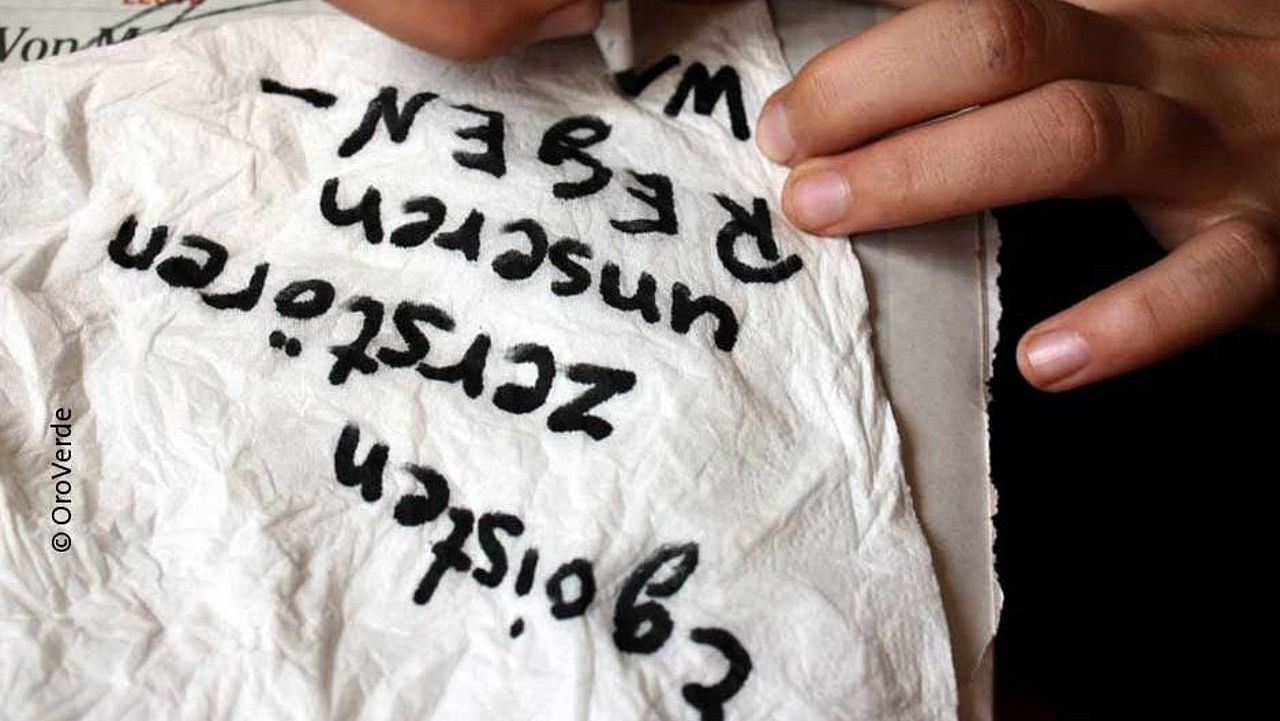 Egoisten
zerstören
unseren
REgEN-
W
Von M
© OroVerde